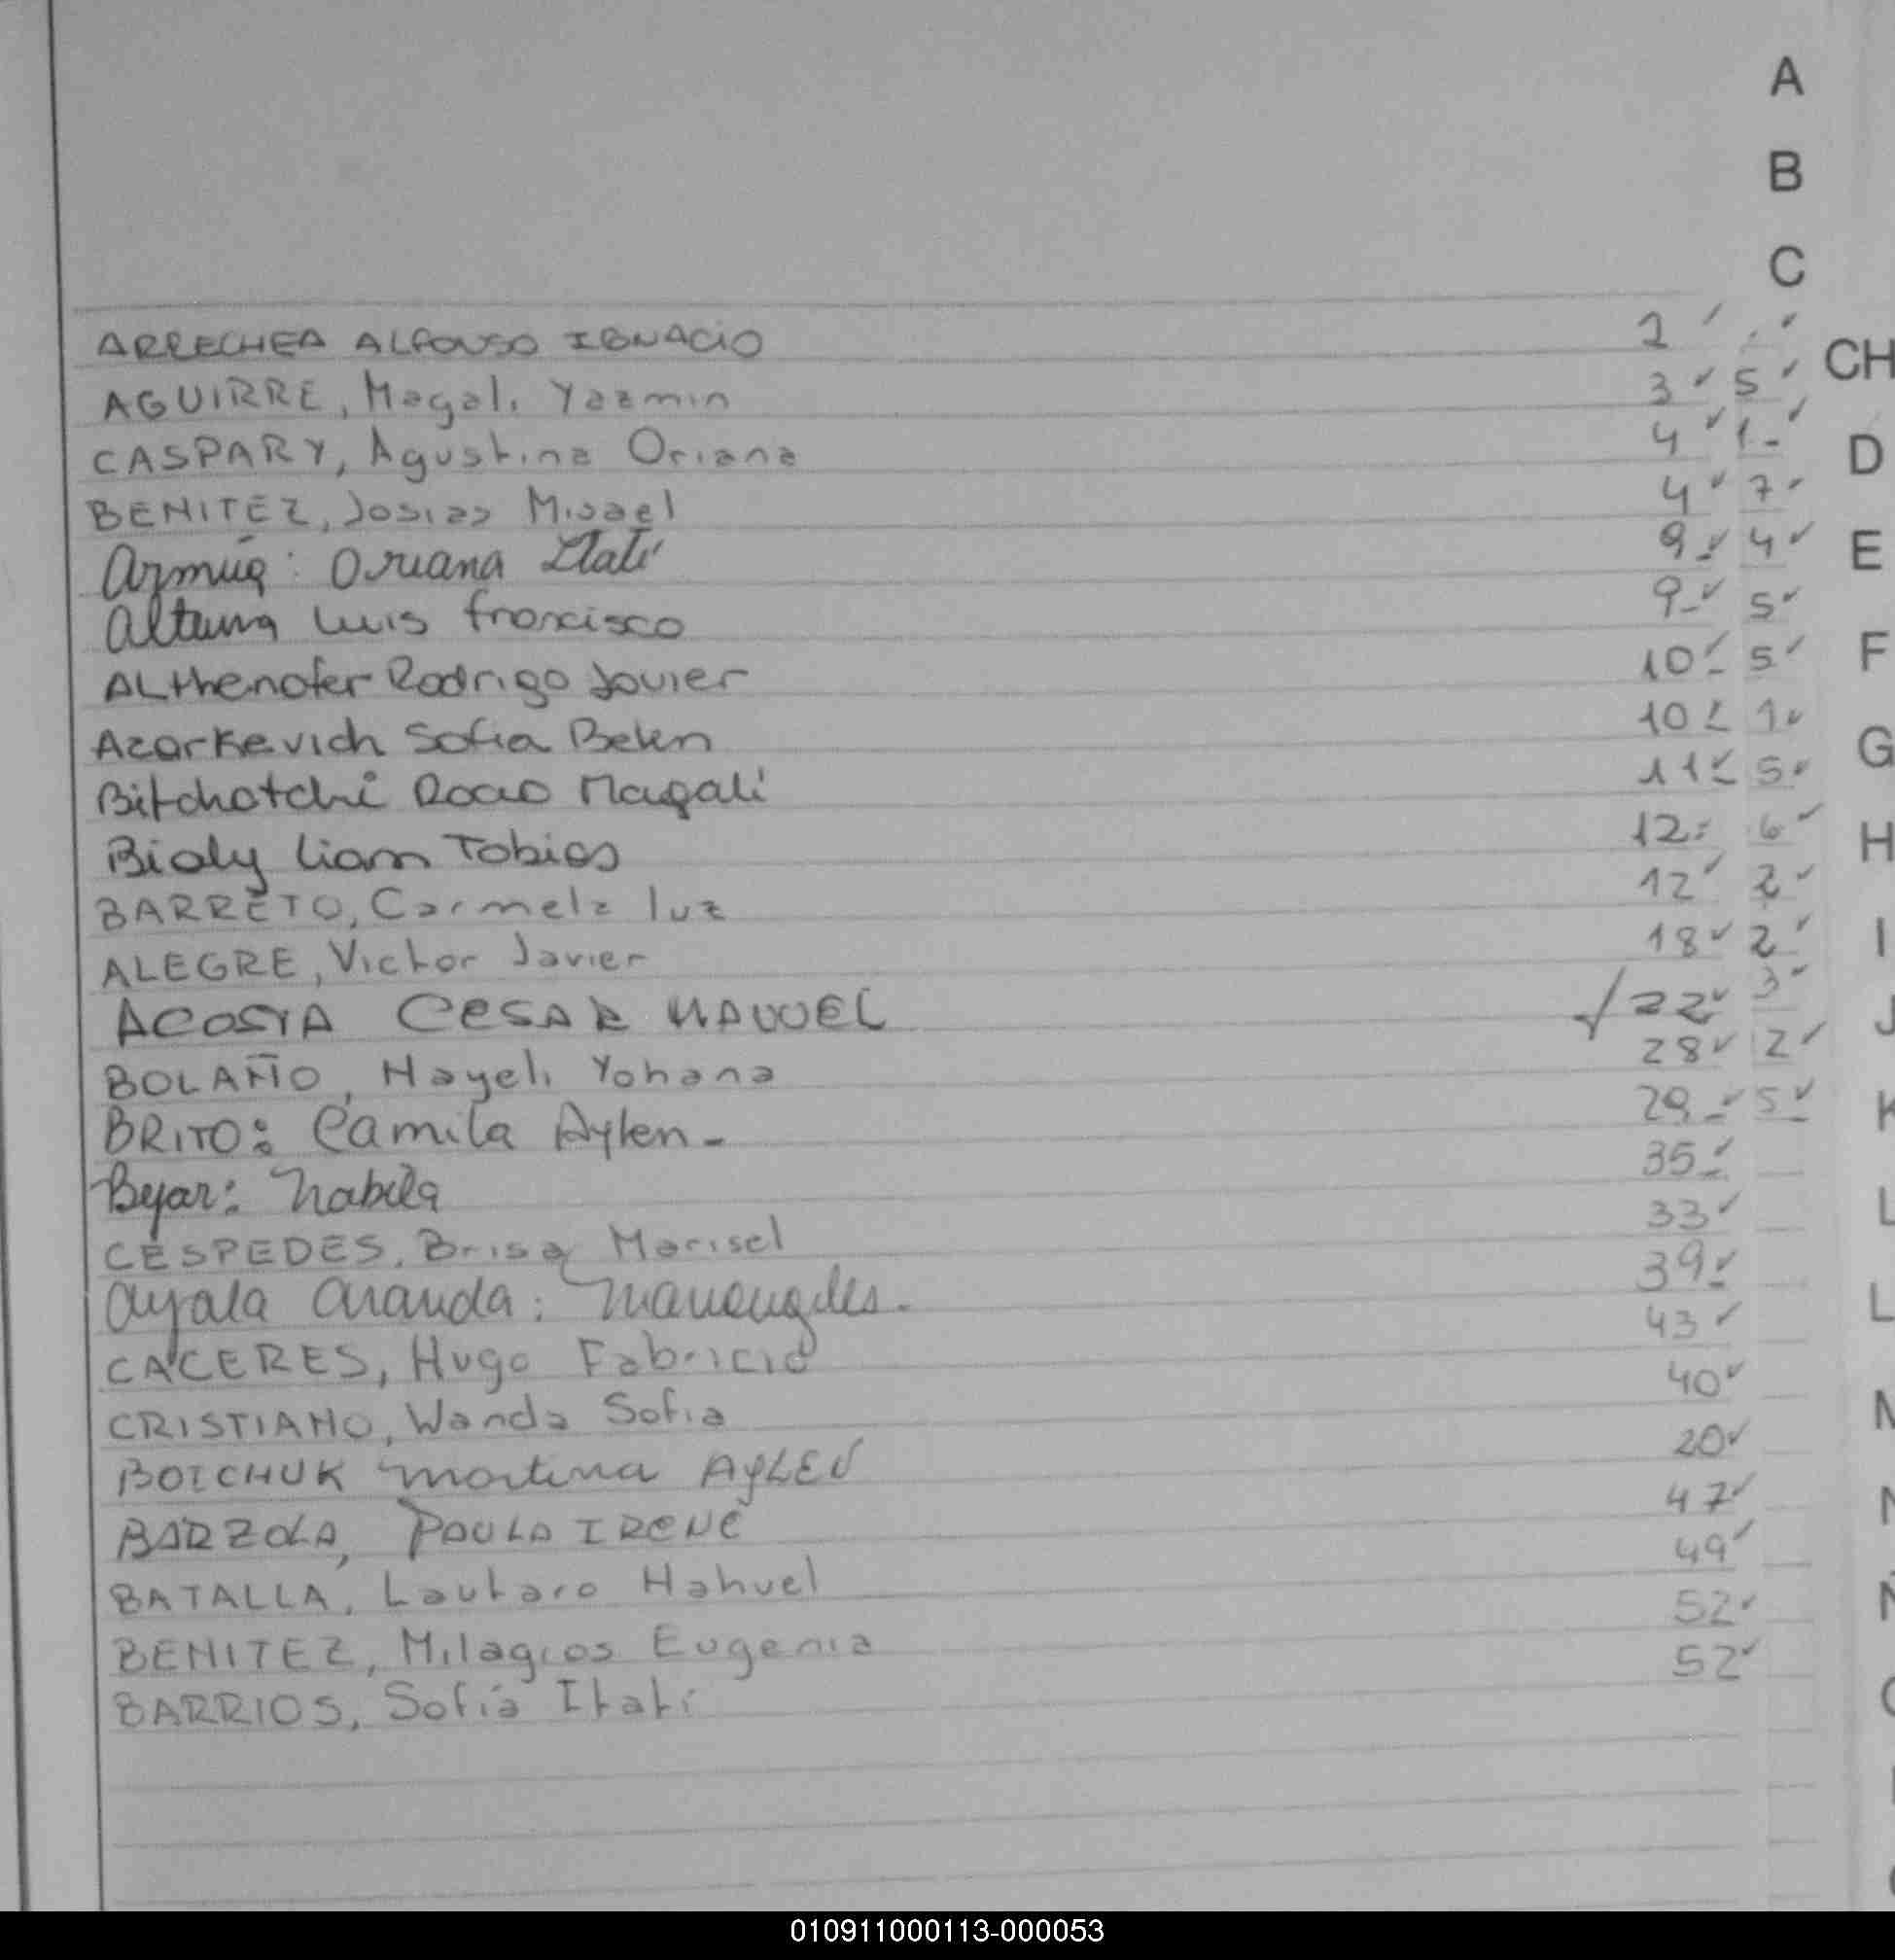 A
B
C
ARRECHEA ALFONSO IGNACIO 2 ✓ . ✓
AGUIRRE, Magali Yazmin 3 ✓ 5 ✓
CH
CASPARY, Agustina Oriana 4 ✓ 1- ✓
D
BENITEZ, Josias Misael 4 ✓ 7 ✓
Azmúa: Oriana Itatí 9 ✓ 4 ✓
E
Altuna Luis francisco 9 ✓ 5 ✓
ALthenofer Rodrigo Javier 10 ✓ 5 ✓
F
Azarkevich Sofia Belen 10 ✓ 1 ✓
G
Bitchatchi Rocio Magali 11 ✓ 5 ✓
Bialy Liam Tobias 12 ✓ 6 ✓
H
BARRETO, Carmela luz 12 ✓ 2 ✓
ALEGRE, Victor Javier 18 ✓ 2 ✓
I
ACOSTA CESAR MANUEL ✓ 22 ✓ 3 ✓
J
BOLAÑO, Nayeli Yohana 28 ✓ 2 ✓
BRITO: Camila Aylen- 29 ✓ 5 ✓
K
Bejar: Nabila 35 ✓
CESPEDES, Brisa Marisel 33 ✓
L
Ayala Aranda: 39 ✓
L
CACERES, Hugo Fabricio 43 ✓
CRISTIANO, Wanda Sofia 40 ✓
M
BOICHUK Martina AYLEN 20 ✓
BARZOLA, PAULA IRENE 47 ✓
N
BATALLA, Lautaro Nahuel 49 ✓
BENITEZ, Milagros Eugenia 52 ✓
BARRIOS, Sofía Itatí 52 ✓
010911000113-000053